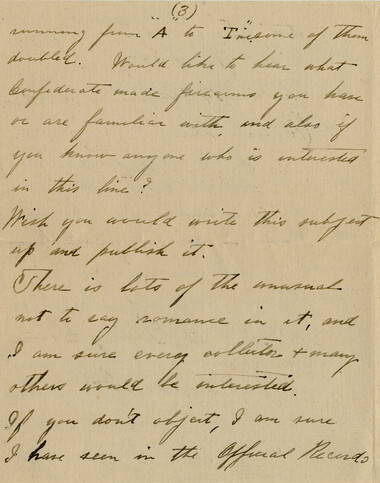 (3)
running from "A" to "T"—some of them
doubled. Would like to hear what
Confederate made firearms you have
or are familiar with, and also if
you know anyone who is interested
in this line?
Wish you would write this subject
up and publish it.
There is lots of the unusual
not to say romance in it, and
I am sure every collector + many
others would be interested.
If you don't object, I am sure
I have seen in the Official Records